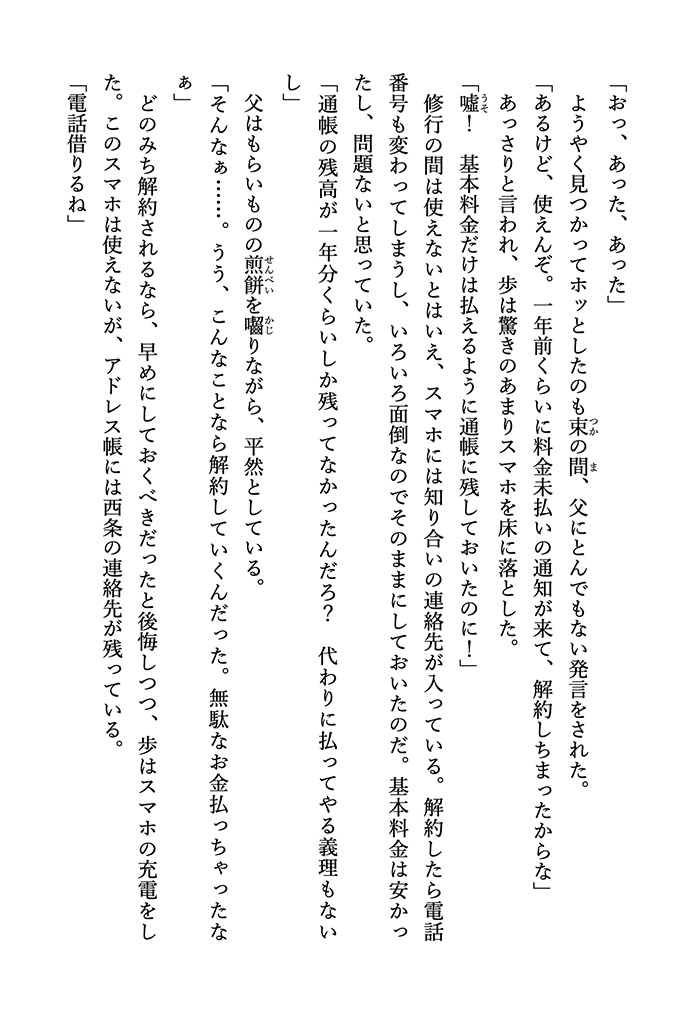 「おっ、あった、あった」
　ようやく見つかってホッとしたのも束の間、父にとんでもない発言をされた。
「あるけど、使えんぞ。一年前くらいに料金未払いの通知が来て、解約しちまったからな」
　あっさりと言われ、歩は驚きのあまりスマホを床に落とした。
「嘘！　基本料金だけは払えるように通帳に残しておいたのに！」
　修行の間は使えないとはいえ、スマホには知り合いの連絡先が入っている。解約したら電話
番号も変わってしまうし、いろいろ面倒なのでそのままにしておいたのだ。基本料金は安かっ
たし、問題ないと思っていた。
「通帳の残高が一年分くらいしか残ってなかったんだろ？　代わりに払ってやる義理もない
し」
　父はもらいものの煎餅を囓りながら、平然としている。
「そんなぁ……。うう、こんなことなら解約していくんだった。無駄なお金払っちゃったな
ぁ」
　どのみち解約されるなら、早めにしておくべきだったと後悔しつつ、歩はスマホの充電をし
た。このスマホは使えないが、アドレス帳には西条の連絡先が残っている。
「電話借りるね」